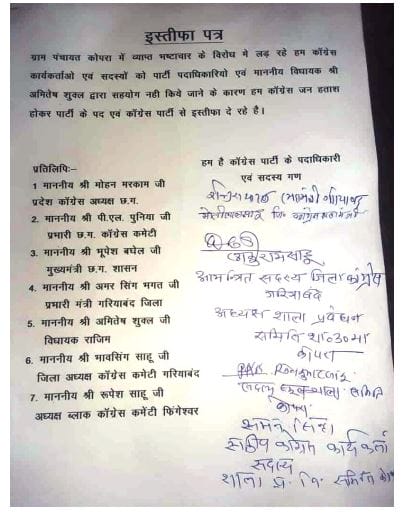 इस्तीफा पत्र
ग्राम पंचायत कोपरा में व्याप्त भष्टाचार के विरोध मे लड़ रहे हम कॉग्रेस
कार्यकर्ताओ एवं सदस्यों को पार्टी पदाधिकारियो एवं माननीय विधायक श्री
अमितेष शुक्ल द्वारा सहयोग नही किये जाने के कारण हम कॉग्रेस जन हताश
होकर पार्टी के पद एवं कॉग्रेस पार्टी से इस्तीफा दे रहे है।
प्रतिलिपिः-
1 माननीय श्री मोहन मरकाम जी
प्रदेश कॉग्रेस अध्यक्ष छ.ग.
2. माननीय श्री पी.एल. पुनिया जी
प्रभारी छ.ग. कॉग्रेस कमेटी
3. माननीय श्री भूपेश बघेल जी
मुख्यमंत्री छ.ग. शासन
4. माननीय श्री अमर सिंह भगत जी
प्रभारी मंत्री गरियाबंद जिला
5. माननीय श्री अमितेष शुक्ल जी
विधायक राजिम
6. माननीय श्री भावसिंग साहू जी
जिला अध्यक्ष कॉग्रेस कमेटी गरियाबंद
7. माननीय श्री रूपेश साहू जी
अध्यक्ष ब्लाक कॉग्रेस कमेंटी फिंगेश्वर
हम है कॉग्रेस पार्टी के पदाधिकारी
एवं सदस्य गण
आमंत्रित सदस्य जिला कांग्रेस
गरियाबंद
अध्यक्ष शाला प्रबंधन
समिति
कोपरा
सदस्य समिति
कोपरा
कांग्रेस कार्यकर्ता
सदस्य
समिति